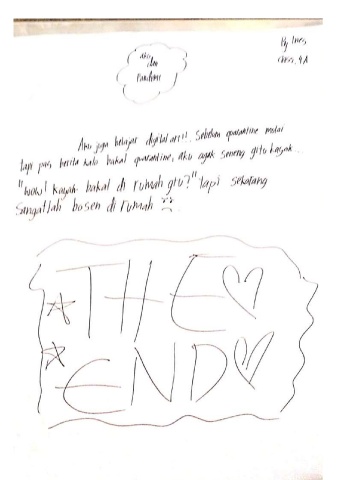 By Ines,
class, 4A
aku
dan
Pandemi
Aku juga belajar digital art!! Sebelum quarantine mulai
tapi pas berita kalo bakal quarantine, aku agak seneng gitu kayak..
"Wow! kayak bakal di rumah gtu?" Tapi sekarang
Sangatlah bosen di rumah ☹.
THE
END